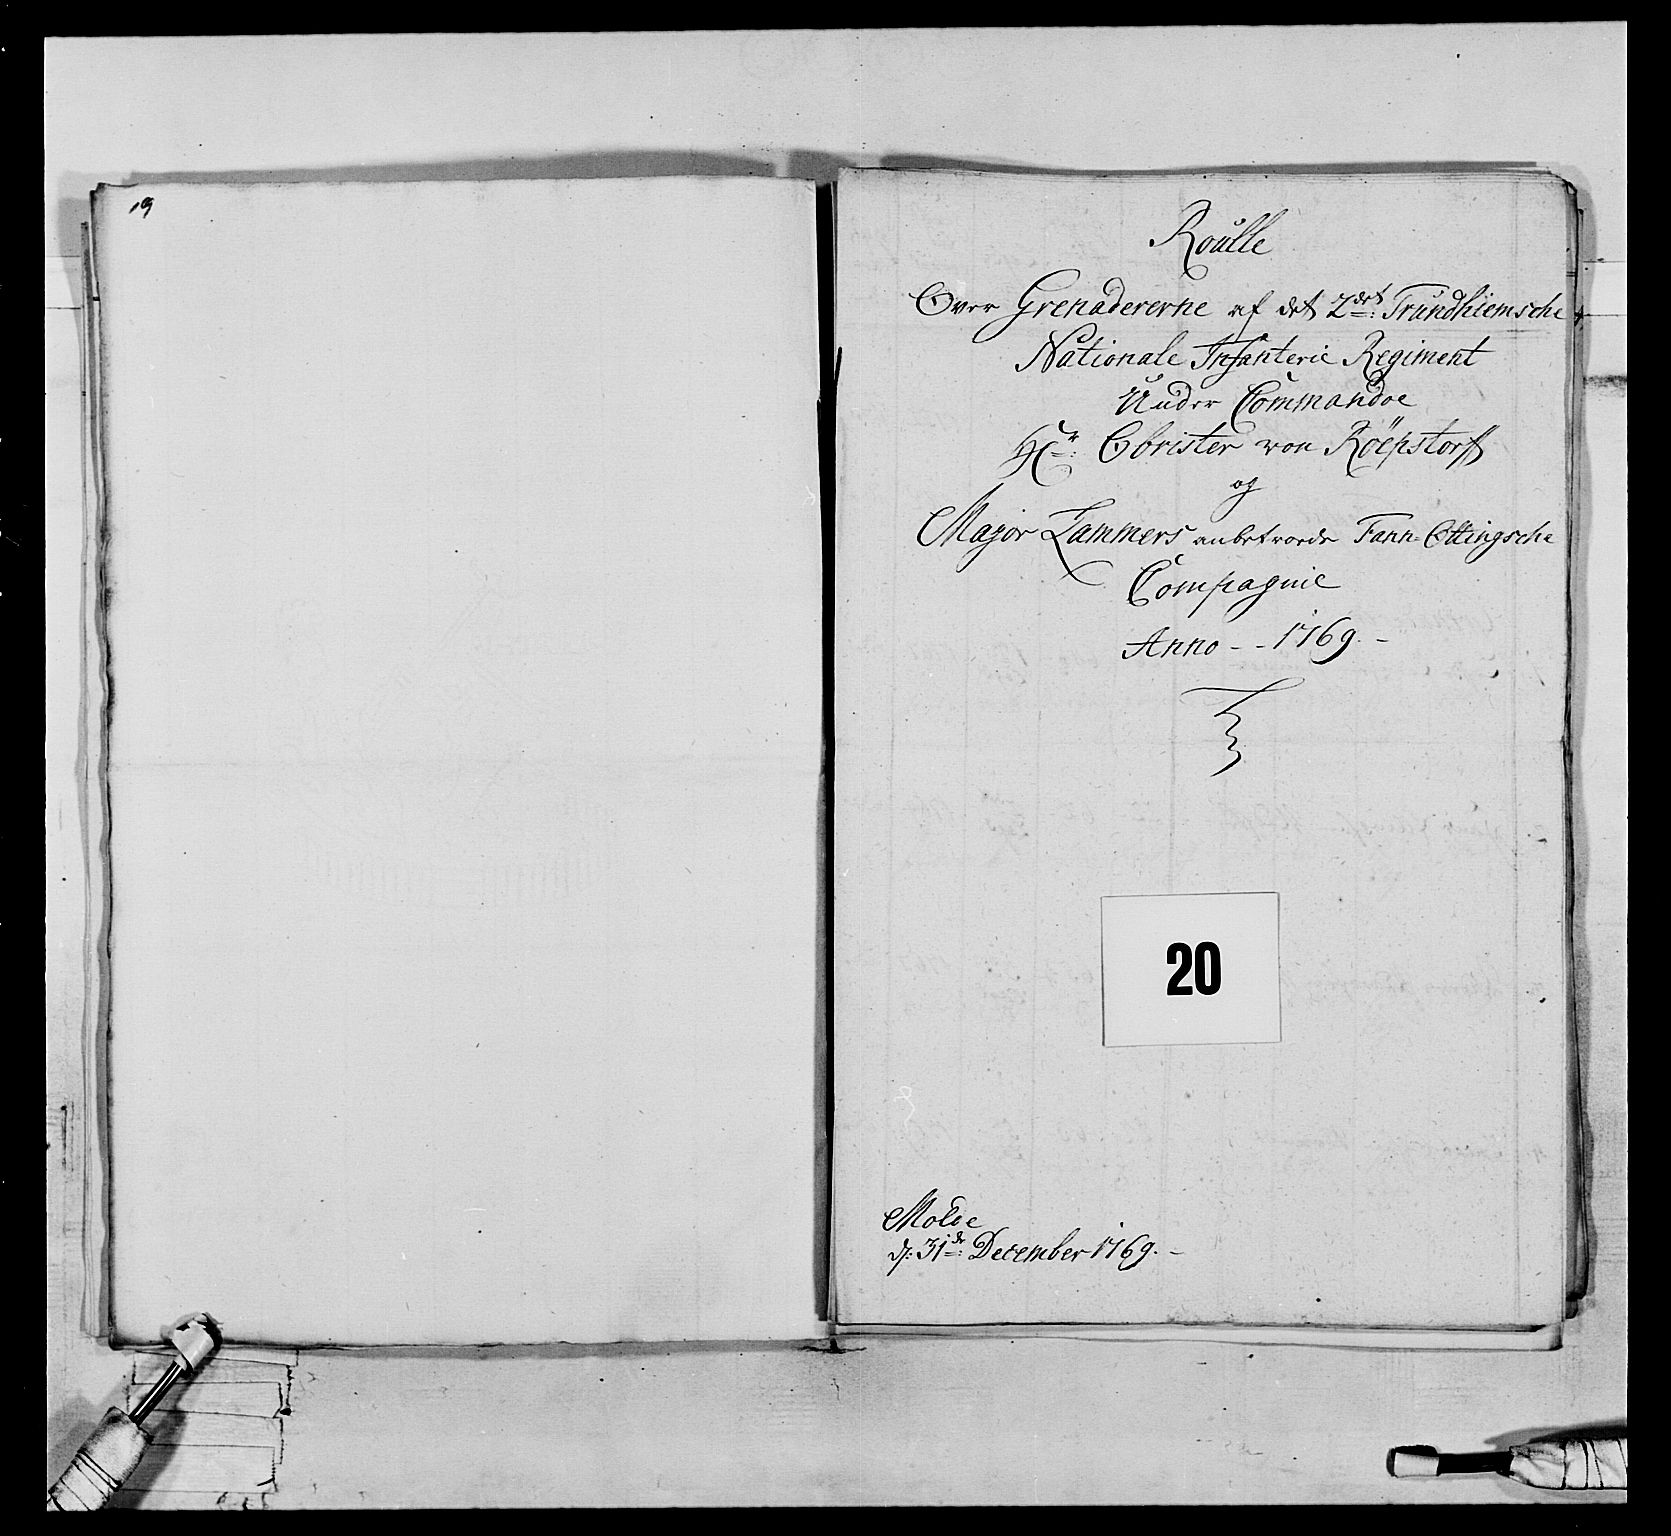 19
Roulle
Over Grenadererne af det 2det: Trundhiemsche
Nationale Infanterie Regiment
Under Commandoe
Hr: Obrister von Röepstorff
og
Major Lammers anbetroede Fann-Ottingsche
Compagnie
Anno - - 1769. -
20
Molde
d: 31de: December 1769. -